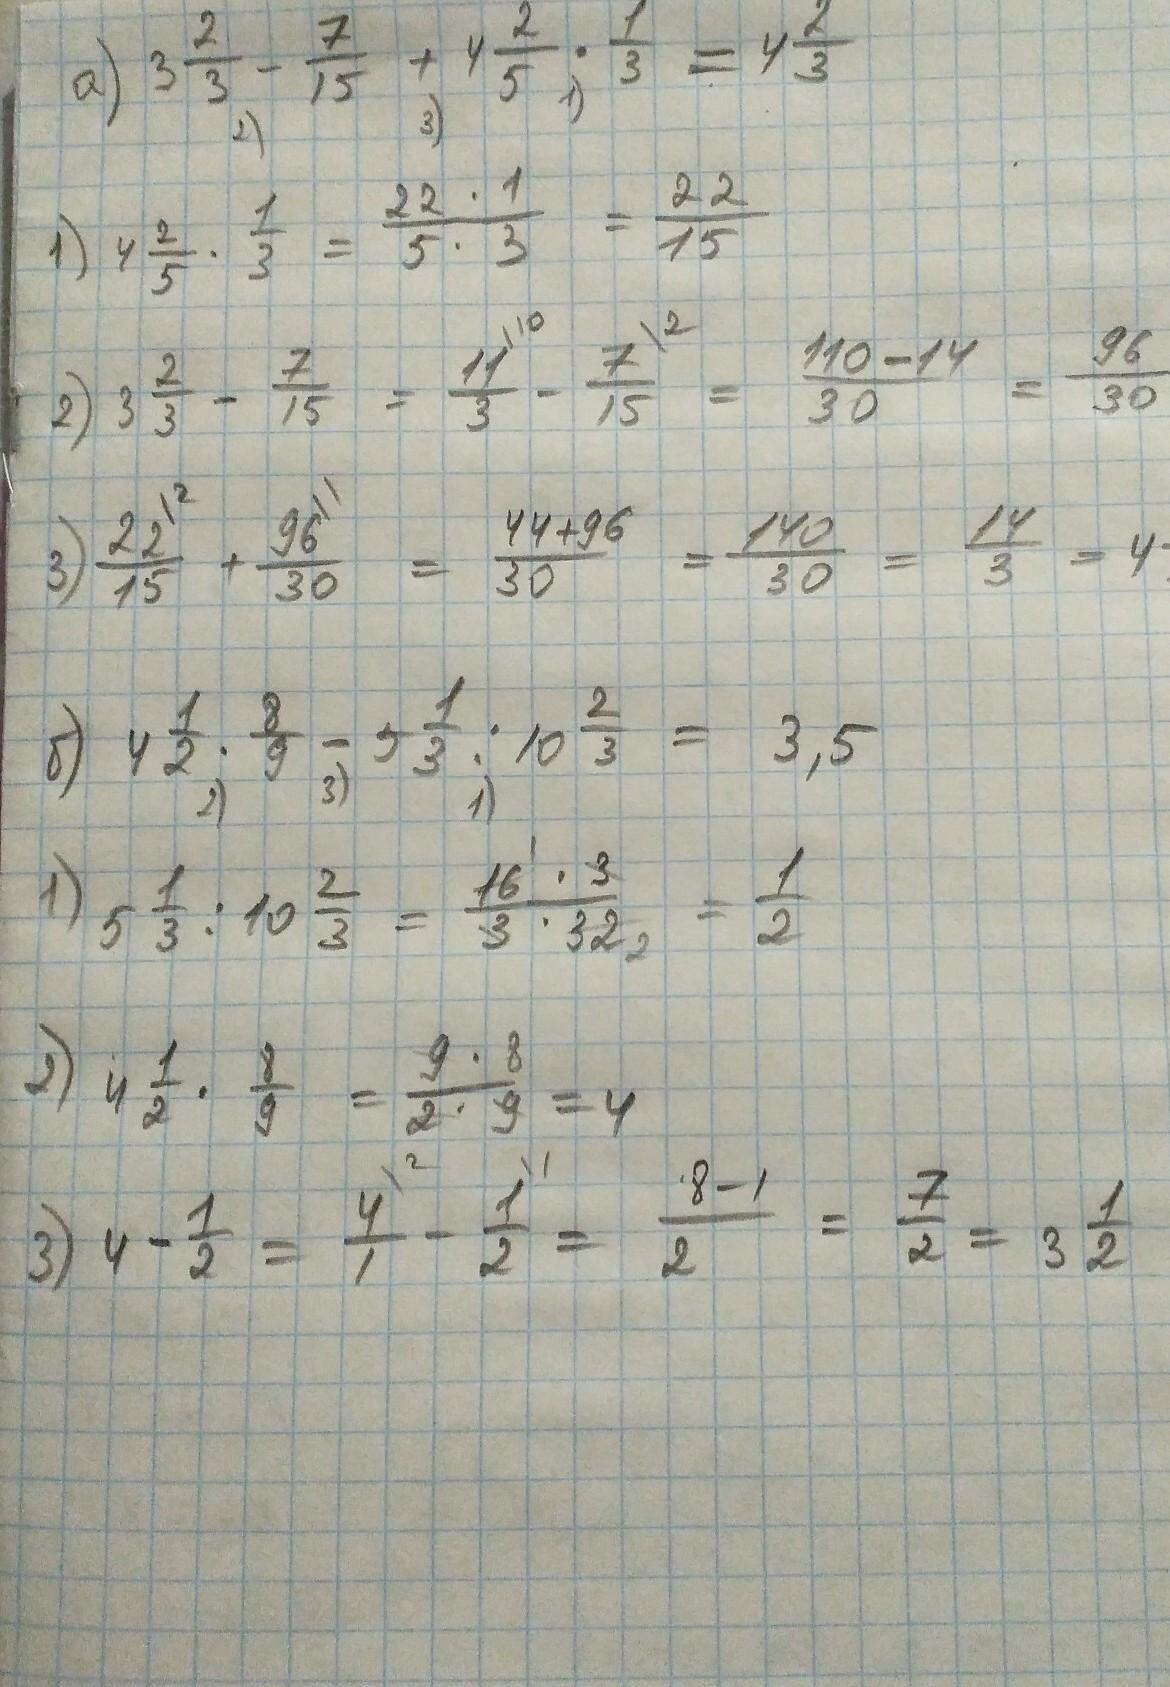 а) 3 2/3 - 7/15 + 4 2/5 · 1/3 = 4 2/3
2) 3) 1)
1) 4 2/5 · 1/3 = 22 · 1 / 5 · 3 = 22/15
2) 3 2/3 - 7/15 = 11\10/3 - 7\2/15 = 110-14/30 = 96/30
3) 22\2/15 + 96\1/30 = 44+96/30 = 140/30 = 14/3 = 4
б) 4 1/2 · 8/9 - 5 1/3 : 10 2/3 = 3,5
2) 3) 1)
1) 5 1/3 : 10 2/3 = 16 1 · 3 / 3 · 32 2 = 1/2
2) 4 1/2 · 8/9 = 9 · 8 / 2 · 9 = 4
3) 4 - 1/2 = 4\2/1 - 1\1/2 = 8-1/2 = 7/2 = 3 1/2